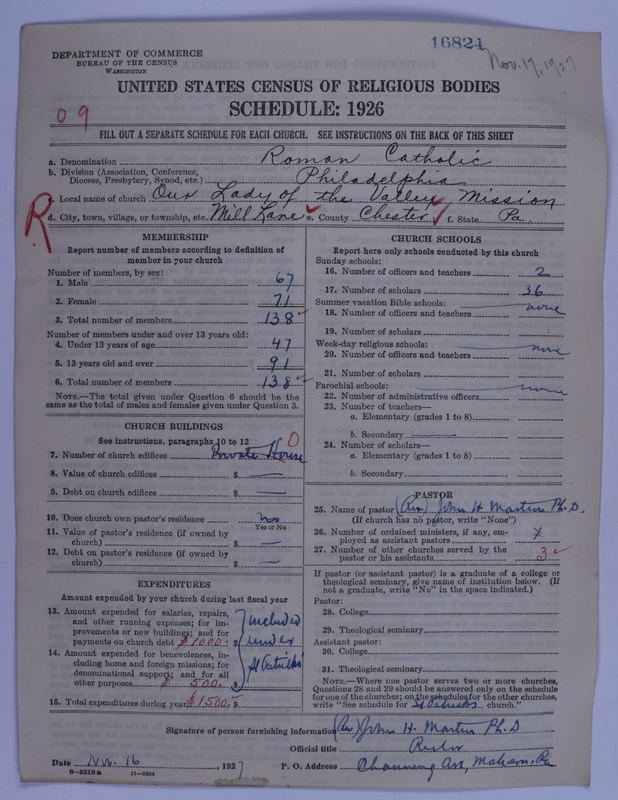 16824
Nov. 17, 1927
DEPARTMENT OF COMMERCE
BUREAU OF THE CENSUS
WASHINGTON
UNITED STATES CENSUS OF RELIGIOUS BODIES
SCHEDULE: 1926
09
FILL OUT A SEPARATE SCHEDULE FOR EACH CHURCH. SEE INSTRUCTIONS ON THE BACK OF THIS SHEET
a. Denomination Roman Catholic
b. Division (Association, Conference, Diocese, Presbytery, Synod, etc.) Philadelphia
c. Local name of church Our Lady of the Valley Mission
R
d. City, town, village, or township, etc. Mill Lane e. County Chester f. State Pa.
MEMBERSHIP
Report number of members according to definition of
member in your church
Number of members, by sex:
1. Male 67
2. Female 71
3. Total number of members 138
Number of members under and over 13 years old:
4. Under 13 years of age 47
5. 13 years old and over 91
6. Total number of members 138
NOTE.—The total given under Question 6 should be the
same as the total of males and females given under Question 3.
CHURCH BUILDINGS
See instructions, paragraphs 10 to 12
7. Number of church edifices Private House 0
8. Value of church edifices $ —
9. Debt on church edifices $ —
10. Does church own pastor's residence no
Yes or No
11. Value of pastor's residence (if owned by
church) $ —
12. Debt on pastor's residence (if owned by
church) $ —
EXPENDITURES
Amount expended by your church during last fiscal year
13. Amount expended for salaries, repairs,
and other running expenses; for im-
provements or new buildings; and for
payments on church debt $1000. $ included
under
St Patricks
14. Amount expended for benevolences, in-
cluding home and foreign missions; for
denominational support; and for all
other purposes $ 500. $
15. Total expenditures during year $1500
CHURCH SCHOOLS
Report here only schools conducted by this church
Sunday schools:
16. Number of officers and teachers 2
17. Number of scholars 36
Summer vacation Bible schools:
18. Number of officers and teachers none
19. Number of scholars
Week-day religious schools:
20. Number of officers and teachers none
21. Number of scholars
Parochial schools: none
22. Number of administrative officers
23. Number of teachers—
a. Elementary (grades 1 to 8)
b. Secondary
24. Number of scholars—
a. Elementary (grades 1 to 8)
b. Secondary
PASTOR
25. Name of pastor (Rev) John H. Martin Ph.D.
(If church has no pastor, write "None")
26. Number of ordained ministers, if any, em-
ployed as assistant pastors
27. Number of other churches served by the
pastor or his assistants 3
If pastor (or assistant pastor) is a graduate of a college or
theological seminary, give name of institution below. (If
not a graduate, write "No" in the space indicated.)
Pastor:
28. College
29. Theological seminary
Assistant pastor:
30. College
31. Theological seminary
NOTE.—Where one pastor serves two or more churches,
Questions 28 and 29 should be answered only on the schedule
for one of the churches; on the schedules for the other churches,
write "See schedule for St Patricks church."
Signature of person furnishing information (Rev) John H. Martin Ph.D
Official title Rector
Date Nov. 16 1927 P. O. Address Channing Ave, Malvern, Pa
8—5518 a 11—9034